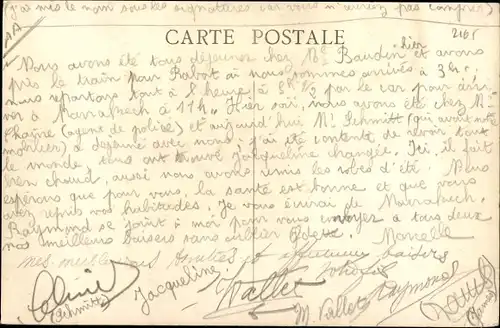 (j'ai mis le nom sous les signatures car vous n'auriez pas compris)
AA
2165
CARTE POSTALE
hier
Nous avons été tous déjeuner chez Mr Baudin et avons
pris le train pour Rabat où nous sommes arrivés à 3h"
nous repartons tout à l'heure à 8h 1/2 par le car pour arri-
ver à Marrakech à 17h" Hier soir, nous avons été chez Mr
(agent de police) et aujourd'hui Mr Schmitt (qui avait notre
mobilier) a déjeuné avec nous, j'ai été contente de revoir tout
le monde, tous ont trouvé Jacqueline changée. Ici, il fait
bien chaud, aussi nous avons mis les robes d'été. Nous
espérons que pour vous, la santé est bonne et que vous
avez repris vos habitudes. Je vous écrirai de Marrakech.
Raymond se joint à moi pour vous envoyer à tous deux
nos meilleurs baisers sans oublier Marcelle
mes meilleures et affectueux baisers
(Schmitt)
Jacqueline
Vallet
M. Vallet
Raymond